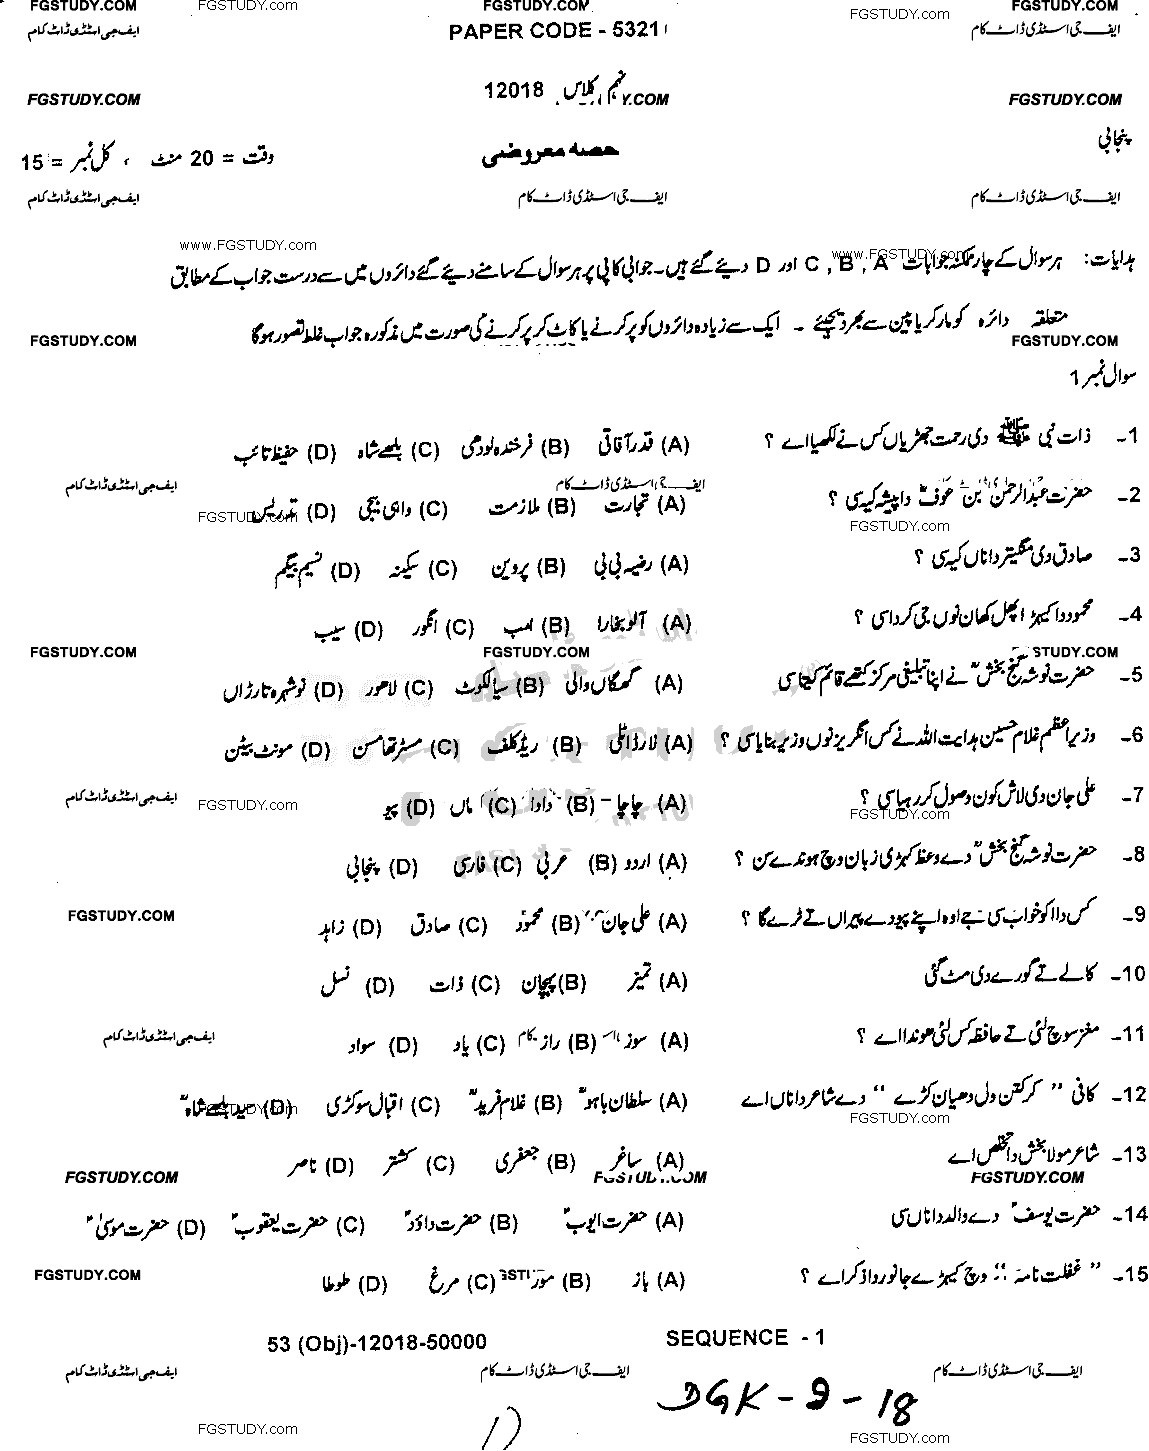 FGSTUDY.COM FGSTUDY.com FGSTUDY.COM FGSTUDY.com FGSTUDY.COM
ایف جی اسٹڈی ڈاٹ کام PAPER CODE - 5321 ایف جی اسٹڈی ڈاٹ کام
FGSTUDY.COM نہم کلاس 12018 Y.COM FGSTUDY.COM
پنجابی
وقت = 20 منٹ ، کل نمبر = 15 حصہ معروضی
ایف جی اسٹڈی ڈاٹ کام ایف جی اسٹڈی ڈاٹ کام ایف جی اسٹڈی ڈاٹ کام
www.FGSTUDY.com www.FGSTUDY.com
ہدایات: ہر سوال کے چار ممکنہ جوابات A , B , C اور D دیئے گئے ہیں۔ جوابی کاپی پر ہر سوال کے سامنے دیئے گئے دائروں میں سے درست جواب کے مطابق
متعلقہ دائرہ کو مارکر یا پین سے بھر دیجئے ۔ ایک سے زیادہ دائروں کو پر کرنے یا کاٹ کر پر کرنے کی صورت میں مذکورہ جواب غلط تصور ہوگا
FGSTUDY.COM FGSTUDY.COM
سوال نمبر 1
1۔ ذات نبی ﷺ دی رحمت جھڑیاں کس نے لکھیا اے ؟ (A) قدر آفاقی (B) فرخندہ لودھی (C) بلھے شاہ (D) حفیظ تائب
ایف جی اسٹڈی ڈاٹ کام ایف جی اسٹڈی ڈاٹ کام
2۔ حضرت عبدالرحمٰن بن عوف دا پیشہ کیہ سی ؟ (A) تجارت (B) ملازمت (C) واہی بیجی (D) تدریس
FGSTUDY.com FGSTUDY.com
3۔ صادق دی منگیتر دا ناں کیہ سی ؟ (A) رضیہ بی بی (B) پروین (C) سکینہ (D) نسیم بیگم
4۔ محمود دا کیہڑا پھل کھان نوں جی کردا سی ؟ (A) آلو بخارا (B) امب (C) انگور (D) سیب
FGSTUDY.COM FGSTUDY.COM STUDY.COM
5۔ حضرت نوشہ گنج بخشؒ نے اپنا تبلیغی مرکز کتھے قائم کیتا سی (A) گھگاں والی (B) سیالکوٹ (C) لاہور (D) نوشہرہ تارڑاں
6۔ وزیراعظم غلام حسین ہدایت اللہ نے کس انگریز نوں وزیر بنایا سی ؟ (A) لارڈ اٹلی (B) ریڈ کلف (C) مسٹر تھامسن (D) مونٹ بیٹن
7۔ علی جان دی لاش کون وصول کر رہیا سی ؟ (A) چاچا (B) دادا (C) ماں (D) پیو
ایف جی اسٹڈی ڈاٹ کام FGSTUDY.com FGSTUDY.com
8۔ حضرت نوشہ گنج بخشؒ دے وعظ کہڑی زبان وچ ہوندے سن ؟ (A) اردو (B) عربی (C) فارسی (D) پنجابی
9۔ کس دا اکو خواب سی جے اوہ اپنے پیو دے پیراں تے ٹرے گا ؟ (A) علی جان (B) محمود (C) صادق (D) زاہد
FGSTUDY.COM
10۔ کالے تے گورے دی مٹ گئی (A) تمیز (B) پہچان (C) ذات (D) نسل
11۔ مغز سوچ لئی تے حافظہ کس لئی ہوندا اے ؟ (A) سوز (B) راز (C) یاد (D) سواد
ایف جی اسٹڈی ڈاٹ کام
12۔ کافی " کر کتن ول دھیان کڑے " دے شاعر دا ناں اے (A) سلطان باہوؒ (B) غلام فریدؒ (C) اقبال سوکڑی (D) سید بلھے شاہؒ
FGSTUDY.com FGSTUDY.com
13۔ شاعر مولا بخش دا تخلص اے (A) ساغر (B) جعفری (C) کشتہ (D) ناصر
FGSTUDY.COM FGSTUDY.COM FGSTUDY.COM
14۔ حضرت یوسفؑ دے والد دا ناں سی (A) حضرت ایوبؑ (B) حضرت داؤدؑ (C) حضرت یعقوبؑ (D) حضرت موسیٰؑ
15۔ " غفلت نامہ " وچ کیہڑے جانور دا ذکر اے ؟ (A) باز (B) مور (C) مرغ (D) طوطا
FGSTUDY.COM
53 (Obj)-12018-50000 SEQUENCE - 1
ایف جی اسٹڈی ڈاٹ کام ایف جی اسٹڈی ڈاٹ کام ایف جی اسٹڈی ڈاٹ کام
DGK-9-18
FGSTUDY.com FGSTUDY.com